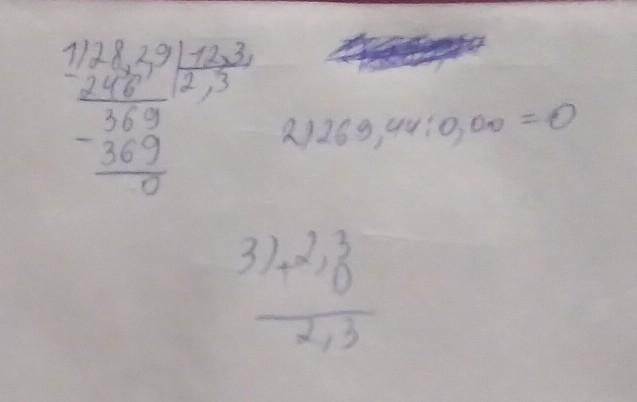 1) 28,2,9 | 12,3,
- 246 | 2,3
369
- 369
0
2) 269,44 : 0,00 = 0
3) + 2,3
0
2,3